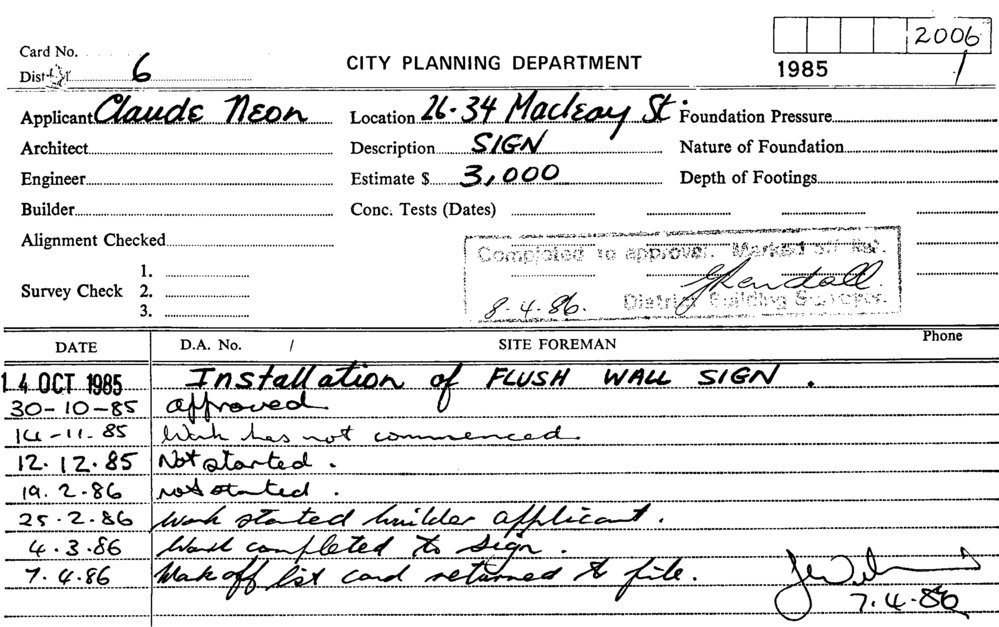 2006
Card No.
CITY PLANNING DEPARTMENT
1985 / 1
Dist 6
Applicant Claude Neon Location 26-34 Macleay St. Foundation Pressure
Architect Description SIGN Nature of Foundation
Engineer Estimate $ 3,000 Depth of Footings
Builder Conc. Tests (Dates)
Alignment Checked
Completed to approval. Marked off list.
1.
Survey Check 2.
3.
Kendall
8.4.86. District Building Surveyor.
DATE D.A. No. / SITE FOREMAN Phone
14 OCT 1985 Installation of FLUSH WALL SIGN.
30-10-85 approved
14-11.85 Work has not commenced.
12.12.85 Not started.
19.2.86 not started.
25.2.86 Work started builder applicant.
4.3.86 Work completed to sign.
7.4.86 Mark off list card returned to file.
7.4.86